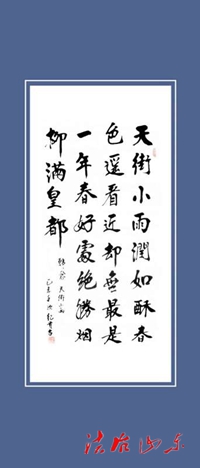 天街小雨潤如酥春
色遥看近却無最是
一年春好處絶勝烟
柳满皇都
法治山东